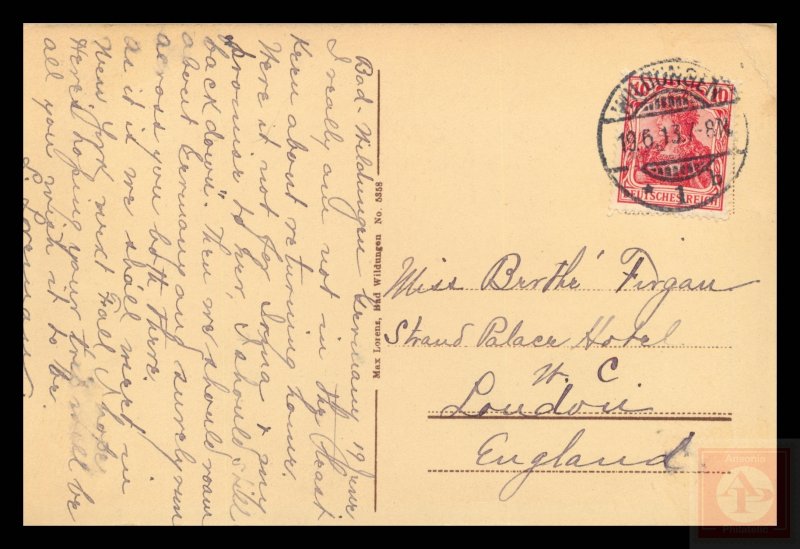 Bad-Wildungen Germany 19 June
I really am not in the least
Keen about returning home.
Were it not for Irma & my
promise to her, I should still
"back down". Then we should roam
about Germany and surely run
across you both there.
as it is we shall meet in
New York next Fall I hope
Here's hoping your trip will be
all you wish it to be.
Max Lorenz, Bad Wildungen No. 5358
WILDUNGEN
19.6.13.7-8N.
* 1 b
10 10
DEUTSCHES REICH
Miss Berthé Firgau
Strand Palace Hotel
W. C
London
England
Ansonia
Philatelic